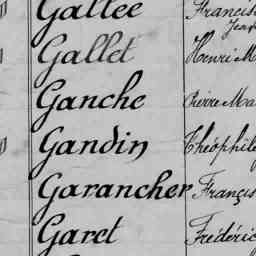 Galtee Francis
Jean
Gallet Henri M
Ganche Pierre Ma
Gandin Théophil
Garancher Franç
Garet Frédéric